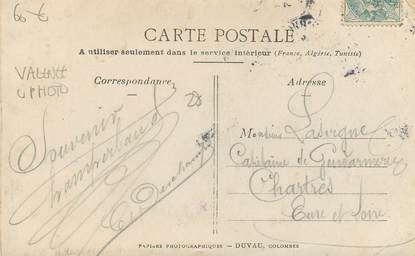 66 €
CARTE POSTALE
A utiliser seulement dans le service intérieur (France, Algérie, Tunisie)
Correspondance
Adresse
VALENCE
PHOTO
28
Souvenir
Monsieur Lavigne
Capitaine de Gendarmerie
Chartres
Eure et Loire
PAPIERS PHOTOGRAPHIQUES - DUVAU, COLOMBES